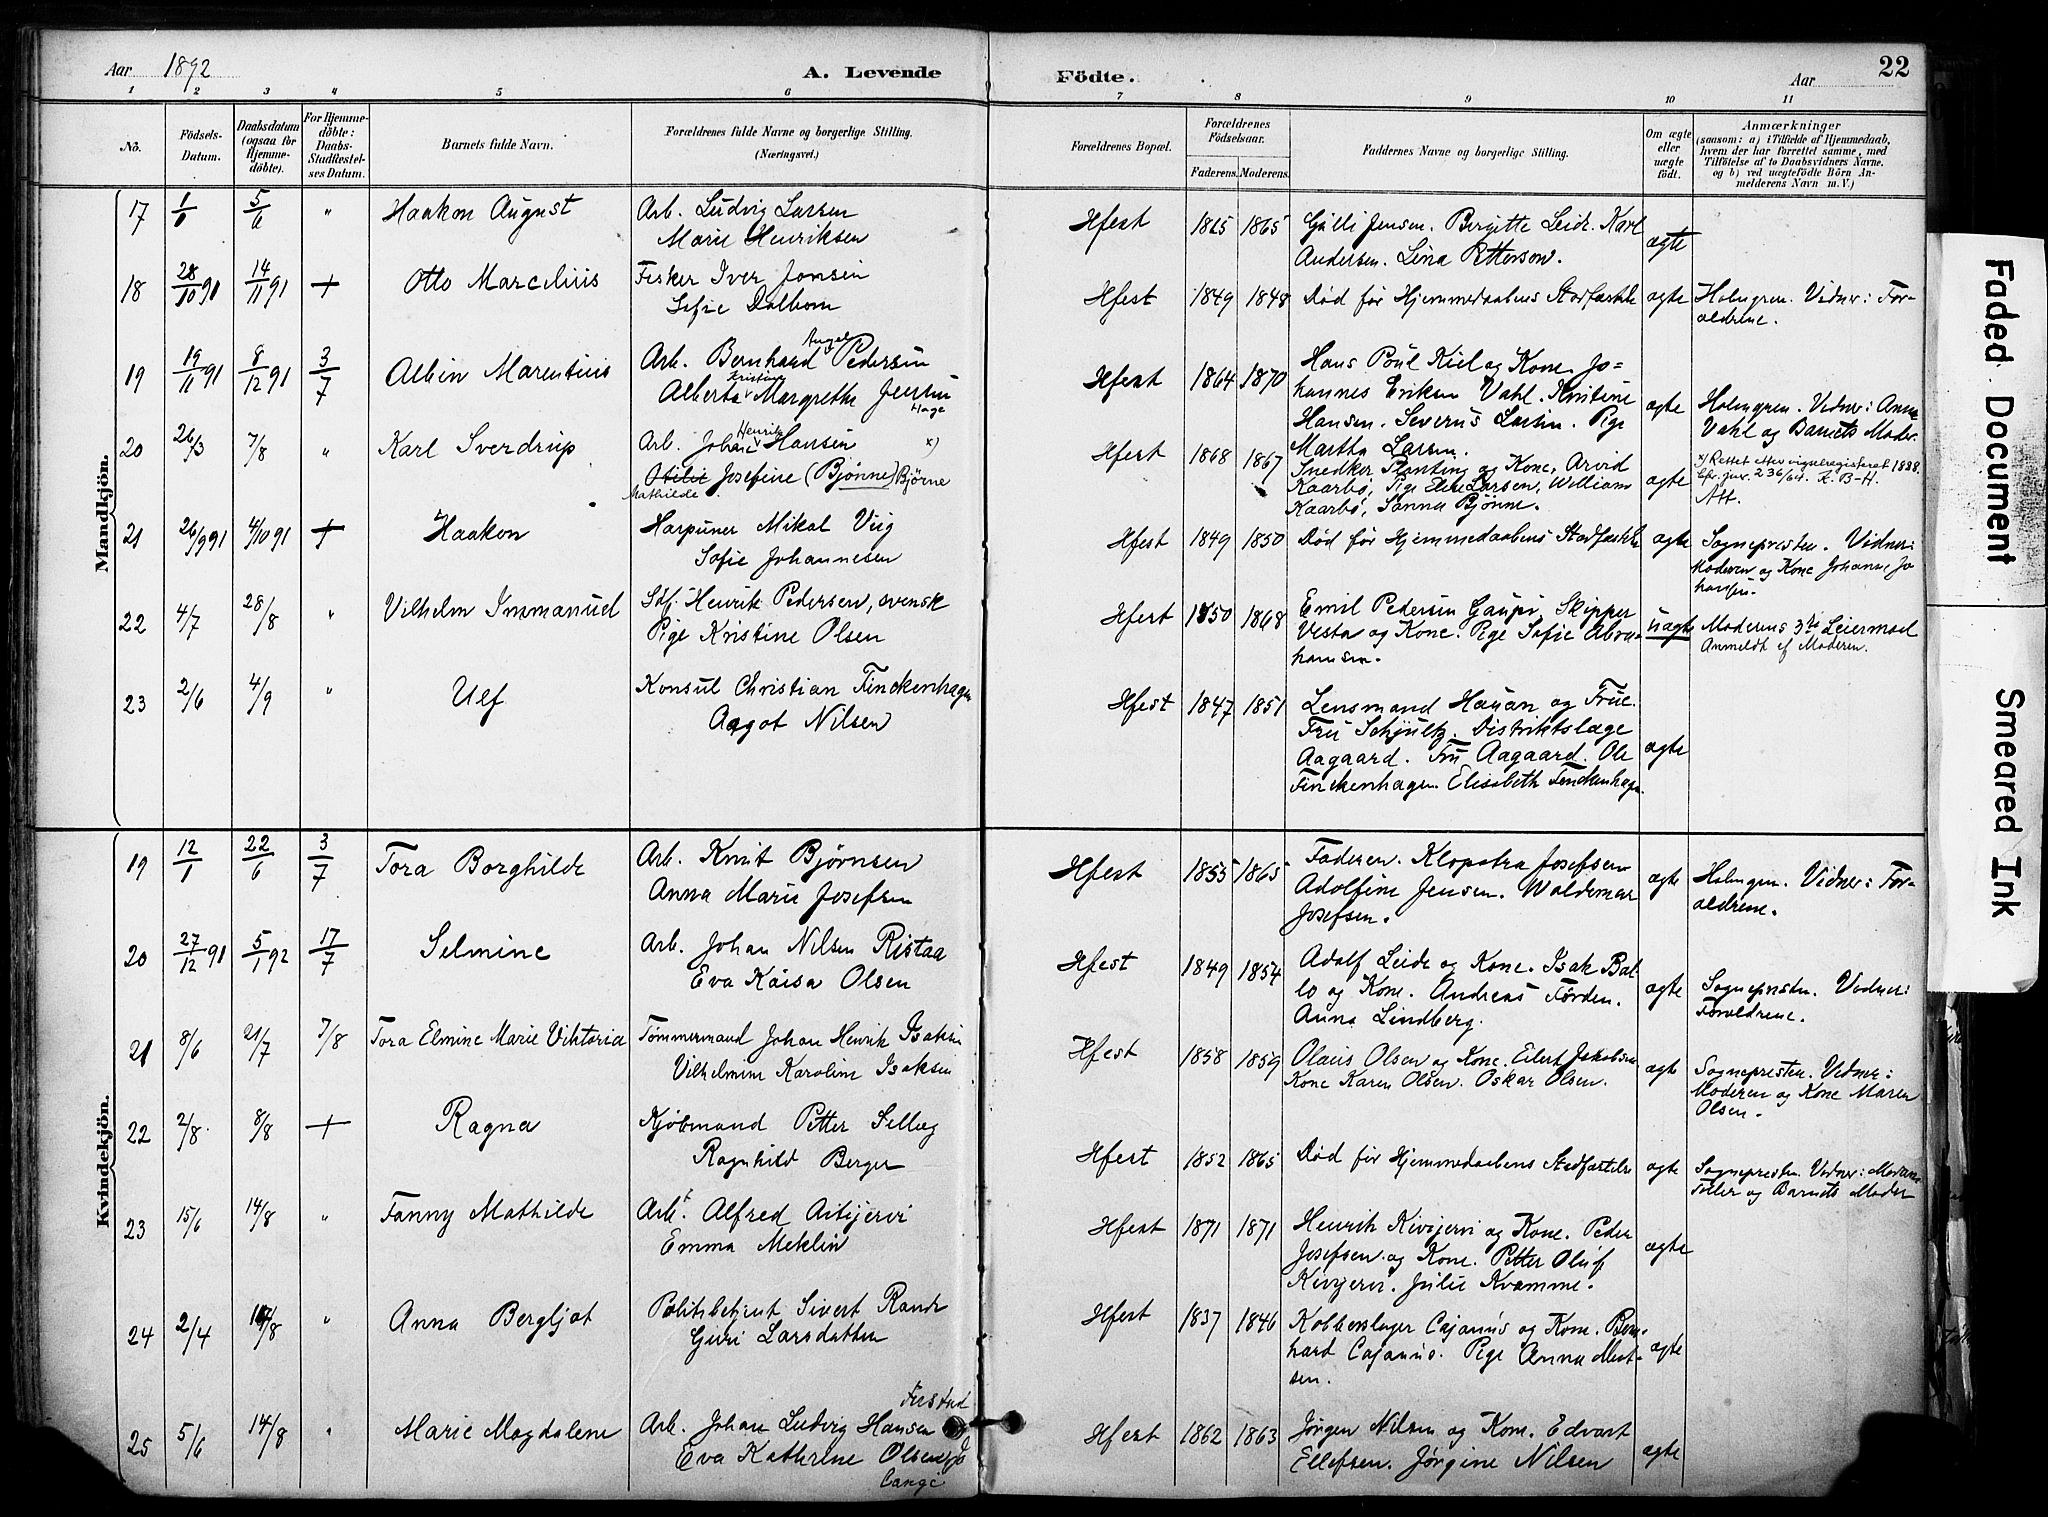 Aar 1892
A. Levende
Födte.
Aar
22
1 2 3 4 5 6 7 8 9 10 11
No.
Födsels-
Datum.
Daabsdatum
(ogsaa för
Hjemme-
döbte).
For Hjemme-
döbte:
Daabs-
Stadfæstel-
ses Datum.
Barnets fulde Navn.
Forældrenes fulde Navne og borgerlige Stilling.
(Næringsvei.)
Forældrenes Bopæl.
Forældrenes
Födselsaar.
Faderens. Moderens.
Faddernes Navne og borgerlige Stilling.
Om ægte
eller
uægte
født.
Anmærkninger
(saasom: a) i Tilfælde af Hjemmedaab,
hvem der har forrettet samme, med
Tilföielse af to Daabsvidners Navne.
og b) ved uægtefödte Börn An-
melderens Navn m. V.)
Mandkjön.
17 5/6 " Haakon August Arb. Ludvig Larsen
Marie Henriksen
Hfest 1865 Birgitte Leide. Karl
Andersen. Lina Petterson.
ægte
18 28/10 91 14/11 91 + Otto Marcelius Fisker Iver Jonsen
Sofie Dalbom
Hfest 1849 1848 Død før Hjemmedaabens Stadfæstelse ægte Holmgren. Vidner: For-
ældrene.
19 19/11 91 8/12 91 3/7 Albin Marentius Arb. Bernhard Angel Pedersen
Alberta Kristine Margrethe Jensen
Hage
Hfest 1864 1870 Hans Poul Kiel og Kone. Jo-
hannes Eriksen Vahl. Kristine
Hansen. Severus Larsen. Pige
Martha Larsen.
ægte Holmgren. Vidner: Anna
Vahl og Barnets Moder.
20 26/3 7/8 " Karl Sverdrup Arb. Johan Henrik Hansen x)
Otilie Josefine (Bjønne) Bjørne
Mathilde
Hfest 1868 1867 Snedker Planting og Kone. Arvid
Kaarbø, Pige Elise Larsen, William
Kaarbø, Sanna Bjønne.
ægte x) Rettet etter vigselregisteret 1888
jfr. jnr. 236/64. K. B-H.
21 26/9 91 4/10 91 + Haakon Harpuner Mikal Viig
Sofie Johannesen
Hfest 1849 1850 Død før Hjemmedaabens Stadfæstelse ægte Sognepresten. Vidner:
Moderen og Kone Johanna Jo-
hansen.
22 4/7 28/8 " Vilhelm Immanuel Søf. Henrik Pedersen, svensk
Pige Kristine Olsen
Hfest 1850 1868 Emil Pedersen Gaupø, Skipper
Vesta og Kone. Pige Sofie Abra-
hamsen.
uægte Moderens 3die Leiermaal
Anmeldt af Moderen.
23 2/6 4/9 " Ulf Konsul Christian Finckenhagen
Aagot Nilsen
Hfest 1847 1851 Lensmand Hauan og Frue.
Fru Schjultz. Distriktslæge
Aagaard. Fru Aagaard. Ole
Finckenhagen. Elisabeth Finckenhagen.
ægte
Kvindekjön.
19 12/1 22/6 3/7 Tora Borghilde Arb. Knut Bjørnsen
Anna Marie Josefsen
Hfest 1855 1865 Faderen. Klopatra Josefsen
Adolfine Jensen. Waldemar
Josefsen.
ægte Holmgren. Vidner: For-
ældrene.
20 27/12 91 5/1 92 17/7 Selmine Arb. Johan Nilsen Ristaa
Eva Kaisa Olsen
Hfest 1849 1854 Adolf Leide og Kone. Isak Bal-
lo og Kone. Andreas Førden.
Anna Lindberg.
ægte Sognepresten. Vidner:
Forældrene.
21 8/6 21/7 7/8 Tora Elmine Marie Viktoria Tømmermand Johan Henrik Isaksen
Vilhelmine Karoline Isaksen
Hfest 1858 1859 Olaus Olsen og Kone. Eilert Jakobsen
Kone Karen Olsen. Oskar Olsen.
ægte Sognepresten. Vidner:
Moderen og Kone Maren
Olsen.
22 2/8 8/8 + Ragna Kjøbmand Petter Selleg
Ragnhild Berger
Hfest 1852 1865 Død før Hjemmedaabens Stadfæstelse ægte Sognepresten. Vidner:
og Barnets Moder
23 15/6 14/8 " Fanny Mathilde Arb. Alfred Aitijervi
Emma Meklin
Hfest 1871 1871 Henrik Kivijervi og Kone. Peder
Josefsen og Kone. Petter Oluf
Kivijervi. Julie Kvamme.
ægte
24 2/4 14/8 " Anna Bergljot Politibetjent Sivert Rande
Guri Larsdatter
Hfest 1837 1846 Kobberslager Cajanus og Kone. Bern-
hard Cajanus. Pige Anna Mort-
sen.
ægte
25 5/6 14/8 " Marie Magdalene Arb. Johan Ludvig Hansen
Eva Kathrine Olsen
Lange
Hfest 1862 1863 Jørgen Nilsen og Kone. Edvart
Ellefsen. Jørgine Nilsen
ægte
Faded Document
Smeared Ink